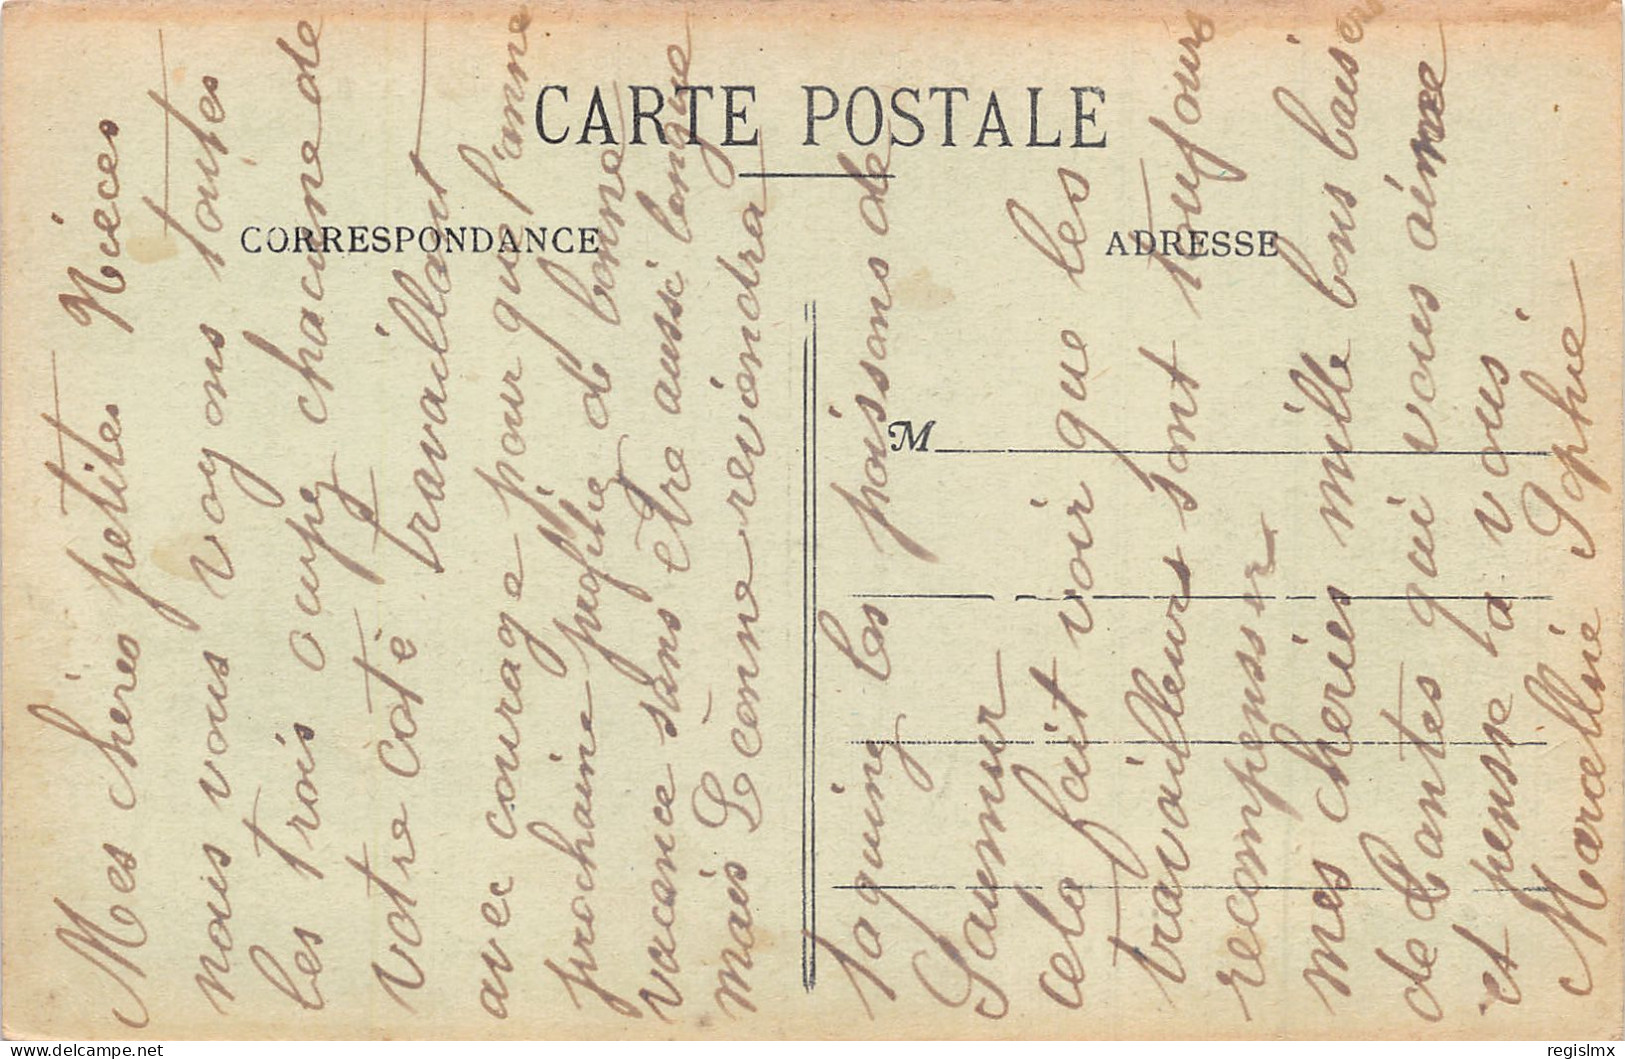 CARTE POSTALE
CORRESPONDANCE
ADRESSE
M
Mes chères petites Nièces
nous vous voyons toutes
les trois oupez chacune de
votre cotè travaillant
avec courage pour que l'anne
prochaine profitez d bonne
vacance sans etre aussi longue
mais Leonne reviendra
taquinez les poissons de
Saumur
cela fait voir que les
travailleurs sont toujours
recompenser
mes cheries mille bons baisers
de tantes qui vous aime
et pense a vous
Marcelline Sophie
regislmx
delcampe.net